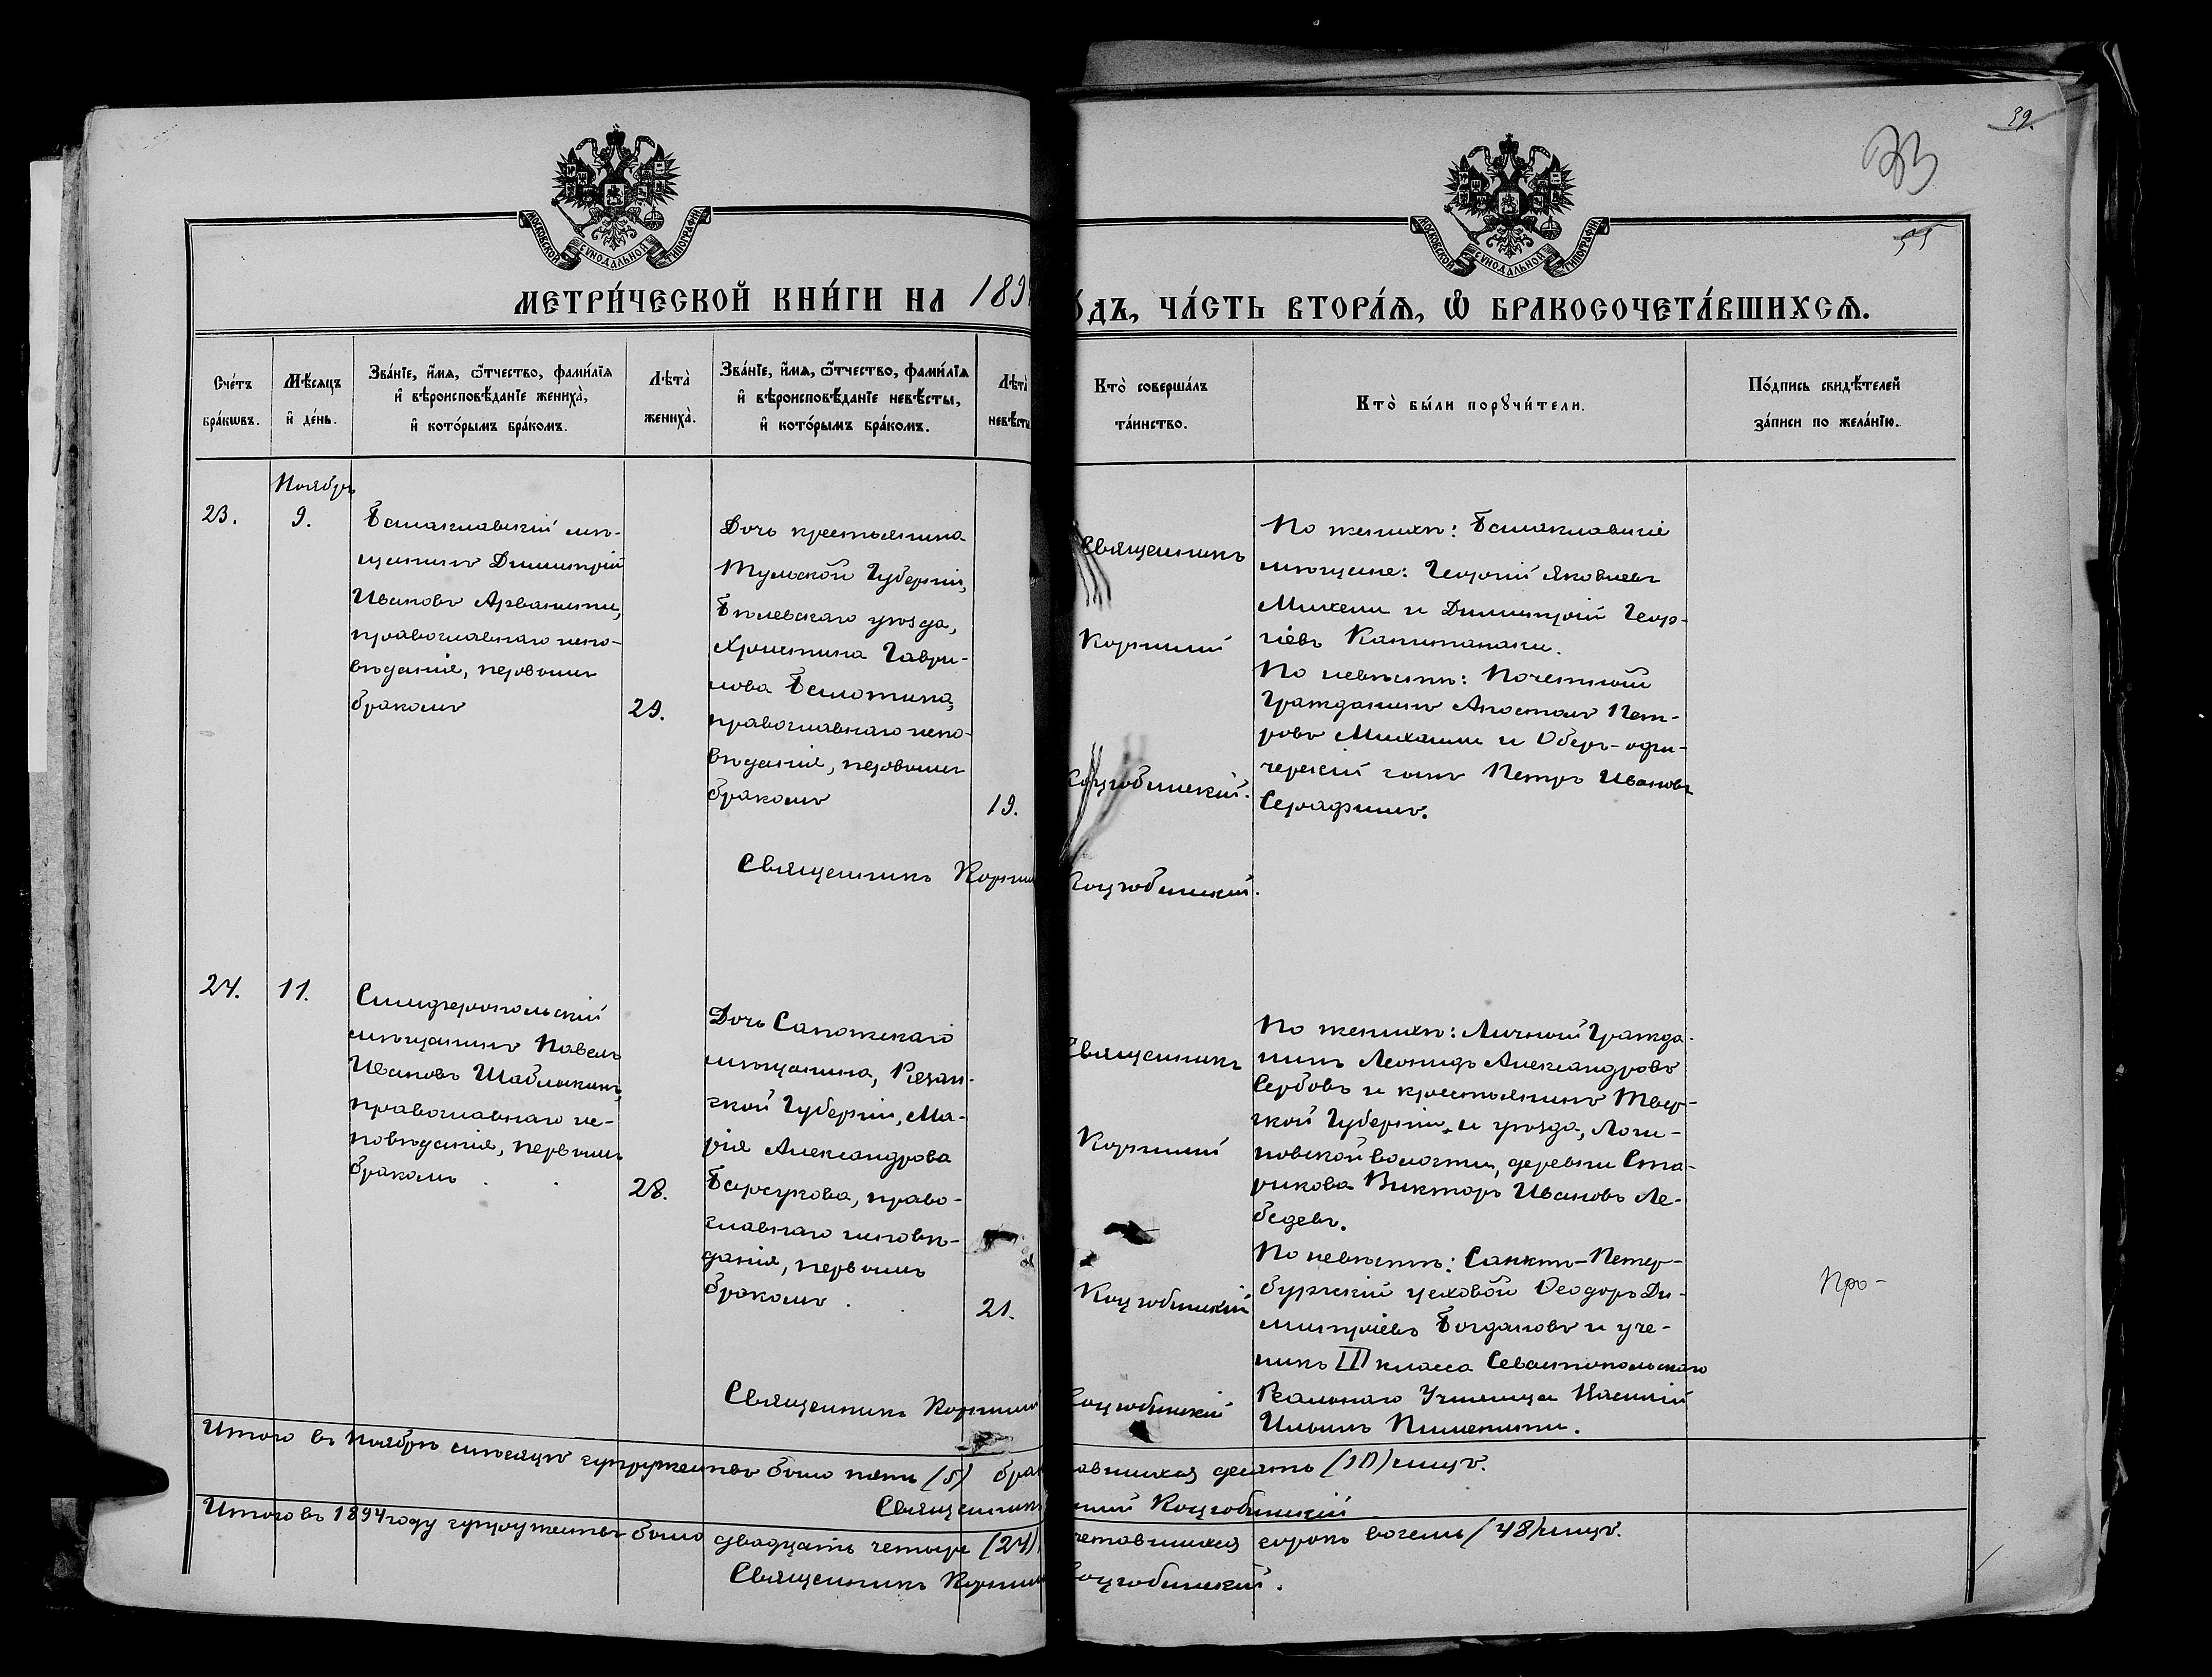 39.
33
55
МОСКОВСКОЙ СѴНОДАЛЬНОЙ ТИПОГРАФІИ
МОСКОВСКОЙ СѴНОДАЛЬНОЙ ТИПОГРАФІИ
МЕТРИ́ЧЕСКОЙ КНИ́ГИ НА 189
ОДЪ, ЧА́СТЬ ВТОРА́Ѧ, Ѽ БРАКОСОЧЕТА́ВШИХСѦ.
Сче́тъ
бра́кѡвъ.
Мѣ́сѧцъ
и҆ де́нь.
Зва́нїе, и҆́мѧ, ѻ҆́тчество, фами́лїѧ
и҆ вѣроисповѣ́данїе жениха̀,
и҆ кото́рымъ бра́комъ.
Лѣта̀
жениха̀.
Зва́нїе, и҆́мѧ, ѻ҆́тчество, фами́лїѧ
и҆ вѣроисповѣ́данїе невѣ́сты,
и҆ кото́рымъ бра́комъ.
Лѣта̀
невѣ́сты
Кто̀ соверша́лъ
та́инство.
Кто̀ бы́ли порꙋчи́тели.
По́дпись свидѣ́телей
за́писи по жела́нїю.
Ноябрь
23.
9.
Балаклавскій мѣ-
щанинъ Димитрій
Ивановъ Арванити,
православнаго испо-
вѣданія, первымъ
бракомъ
29.
Дочь крестьянина
Тульской Губерніи,
Бѣлевскаго уѣзда,
Христина Гаври-
лова Болотина,
православнаго испо-
вѣданія, первымъ
бракомъ
19.
Священникъ
Корнилій
Коцюбинскій.
По женихѣ: Балаклавскіе
мѣщане: Георгій Яковлевъ
Михели и Димитрій Геор-
гіевъ Капитанаки.
По невѣстѣ: Почетный
Гражданинъ Апостолъ Пет-
ровъ Михаили и Оберъ-офи-
церскій сынъ Петръ Ивановъ
Серафимъ.
Священникъ Корнил
Коцюбинскій.
24.
11.
Симферопольскій
мѣщанинъ Павелъ
Ивановъ Шаблыкинъ,
православнаго ис-
повѣданія, первымъ
бракомъ
28.
Дочь Сапожскаго
мѣщанина, Рязан-
ской Губерніи, Ма-
рія Александрова
Барсукова, право-
славнаго исповѣ-
данія, первымъ
бракомъ
21.
Священникъ
Корнилій
Коцюбинскій
По женихѣ: Личный Гражда-
нинъ Леонидъ Александровъ
Сербовъ и крестьянинъ Твер-
ской Губерніи и уѣзда, Логи-
новской волости, деревни Ста-
рикова Викторъ Ивановъ Ле-
бедевъ.
По невѣстѣ: Санктъ-Петер-
бургскій цеховой Ѳеодоръ Ди-
митріевъ Богдановъ и уче-
никъ III класса Севастопольскаго
Реальнаго Училища
Ильинъ
Про-
Священникъ Корнилій
Коцюбинскій
Итого въ Ноябрѣ мѣсяцѣ супружествъ было пять (5) брак
авшихся десять (10) лицъ.
Священникъ
илій Коцюбинскій
Итого въ 1894 году супружествъ было двадцать четыре (24)
четавшихся сорокъ восемь (48) лицъ.
Священникъ Корнил
Коцюбинскій.